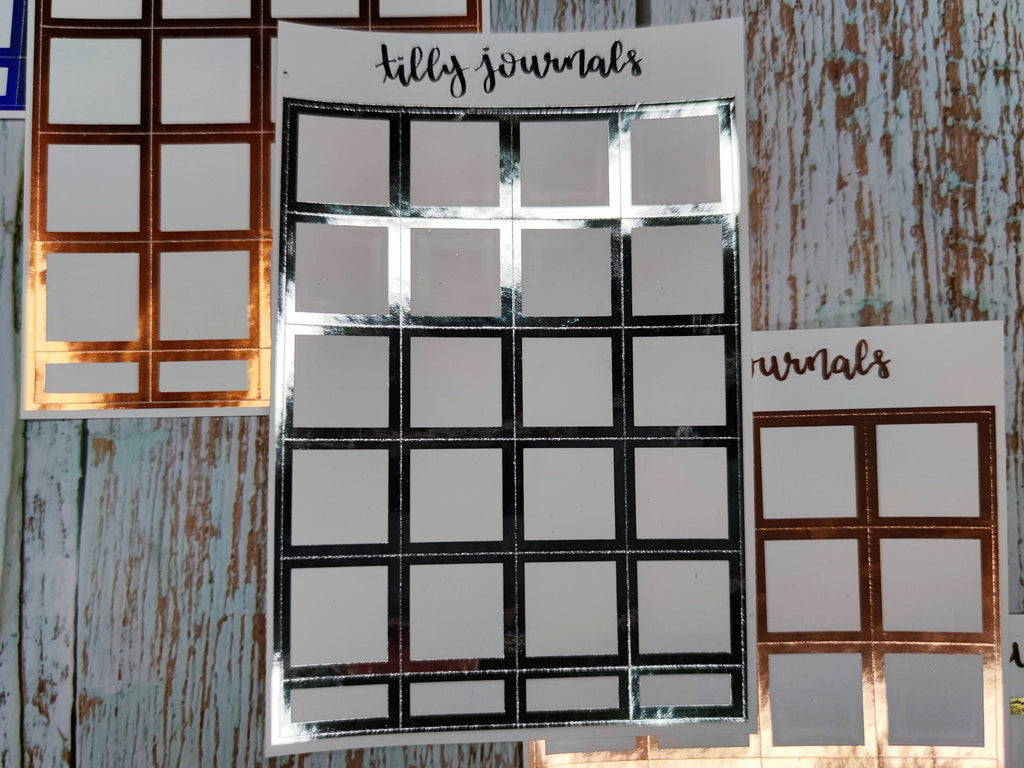 tilly journals
journals